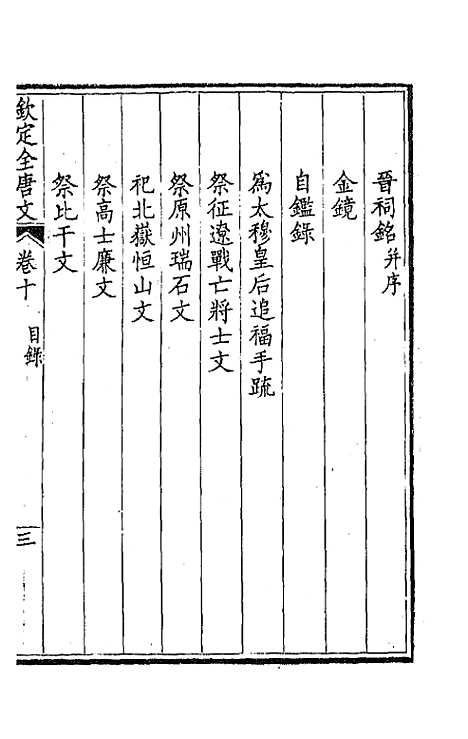 晉祠銘并序
金鏡
自鑑錄
爲太穆皇后追福手疏
祭征遼戰亡將士文
祭原州瑞石文
祀北嶽恒山文
祭高士廉文
祭比干文
欽定全唐文 卷十 目錄 三